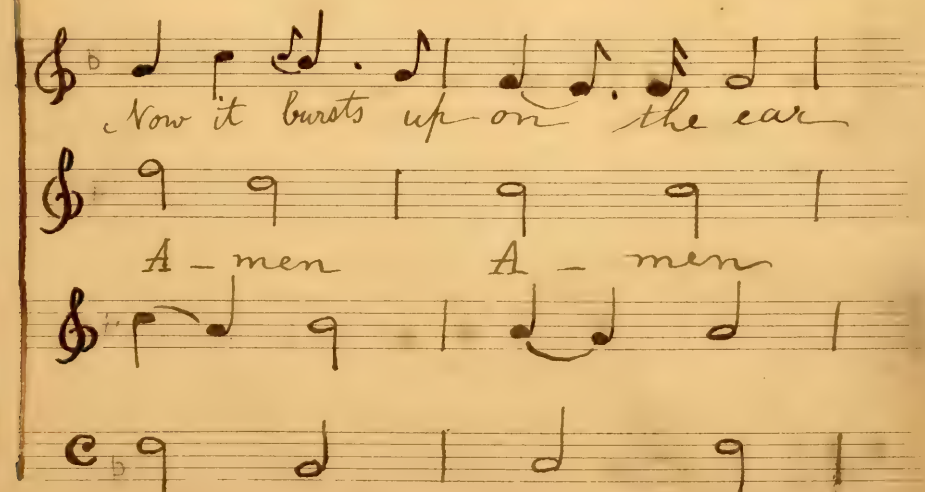 Now it bursts up-on the ear
A - men A - men